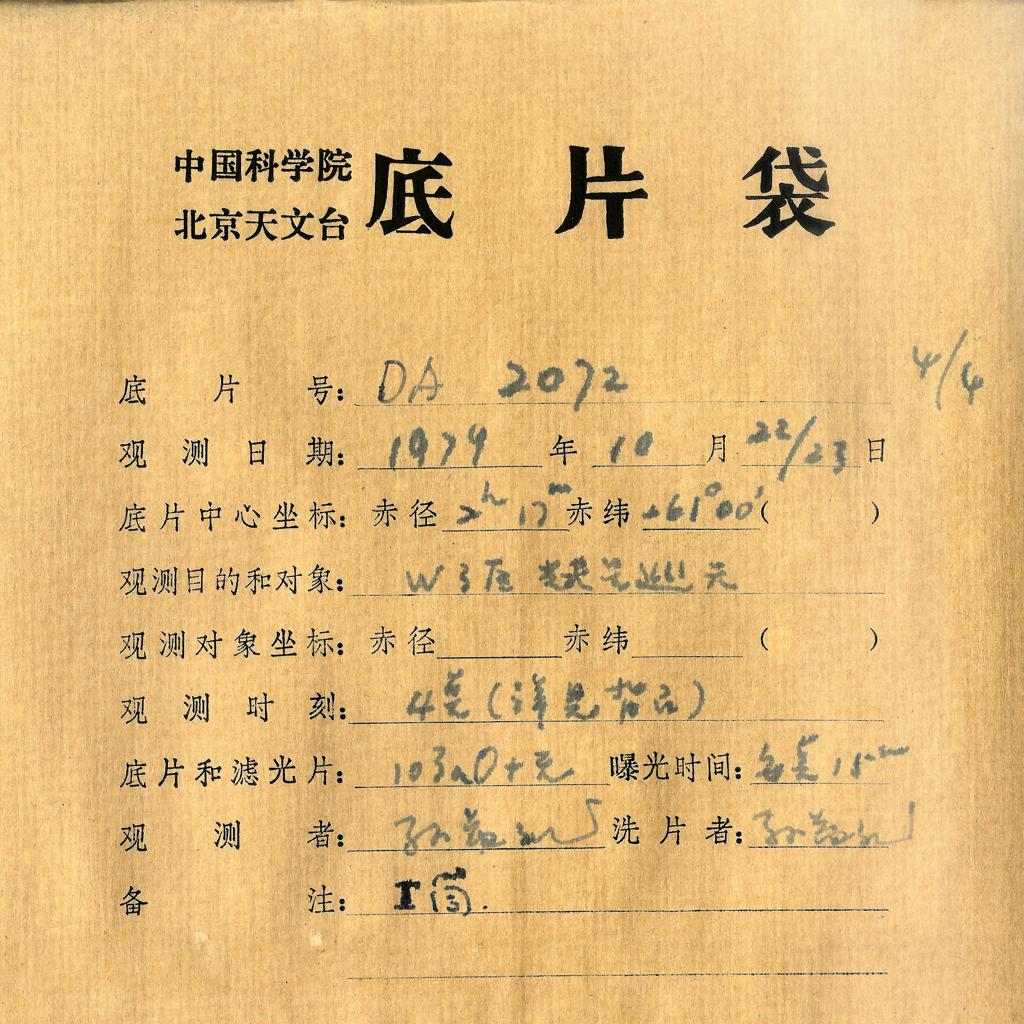 中国科学院
北京天文台
底片袋
4/4
底片号: DA 2072
观测日期: 1979年10月22/23日
底片中心坐标: 赤径 2h 17m 赤纬 +61°00′ ( )
观测目的和对象: W3
观测对象坐标: 赤径 赤纬 ( )
观测时刻: 4莫(详见背面)
底片和滤光片: 103aO+无 曝光时间: 每莫15m
观测者: 孙 洗片者: 孙
备注: I筒.